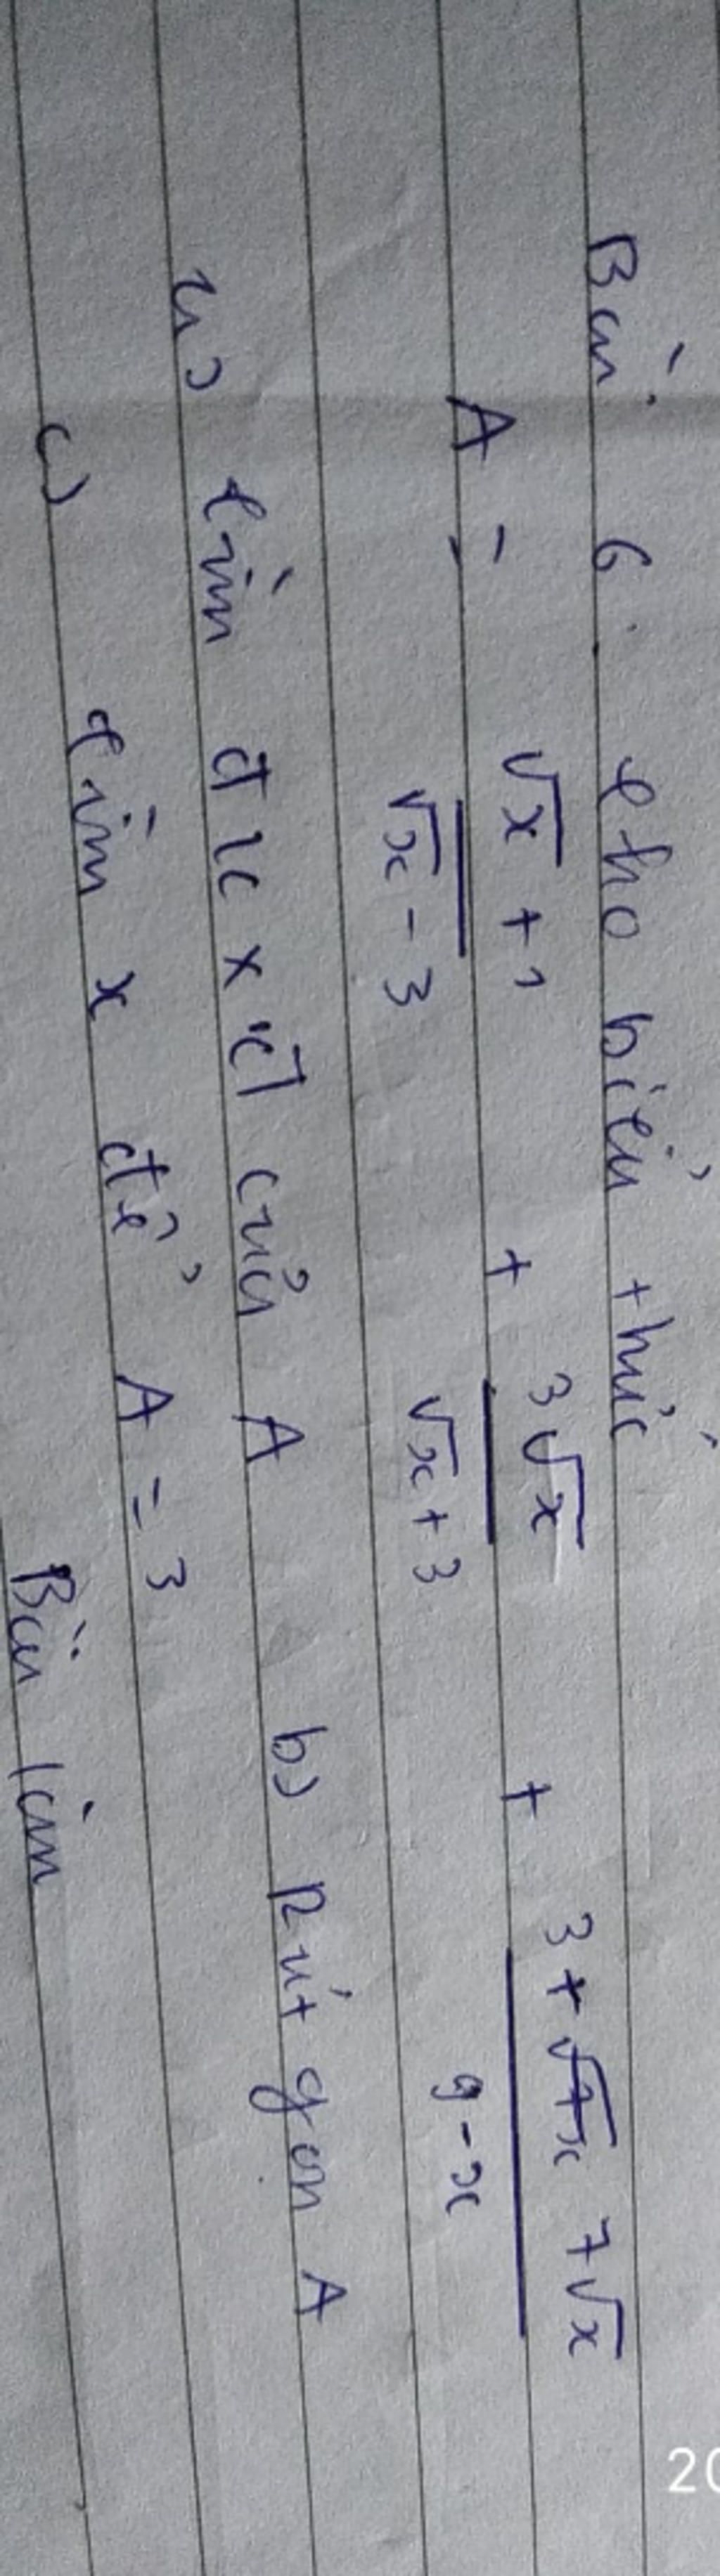 Bài 6. Cho biểu thức
A = \frac{\sqrt{x} + 1}{\sqrt{x} - 3} + \frac{3\sqrt{x}}{\sqrt{x} + 3} + \frac{3 + 7\sqrt{x}}{9 - x}
a) tìm đkxđ của A b) Rút gọn A
c) tìm x để A = 3
Bài làm
20